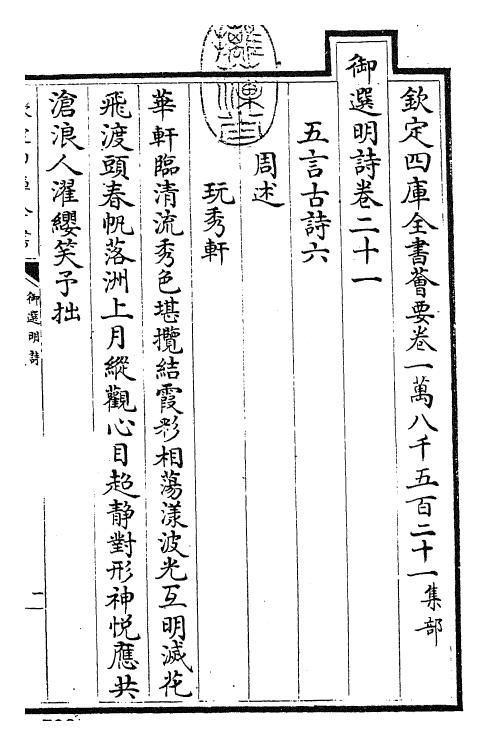 欽定四庫全書薈要卷一萬八千五百二十一集部
御選明詩卷二十一
五言古詩六
周述
玩秀軒
華軒臨清流秀色堪攬結霞彩相蕩漾波光互明滅花
飛渡頭春帆落洲上月縱觀心目超静對形神悦應共
滄浪人濯纓笑予拙
御選明詩
二